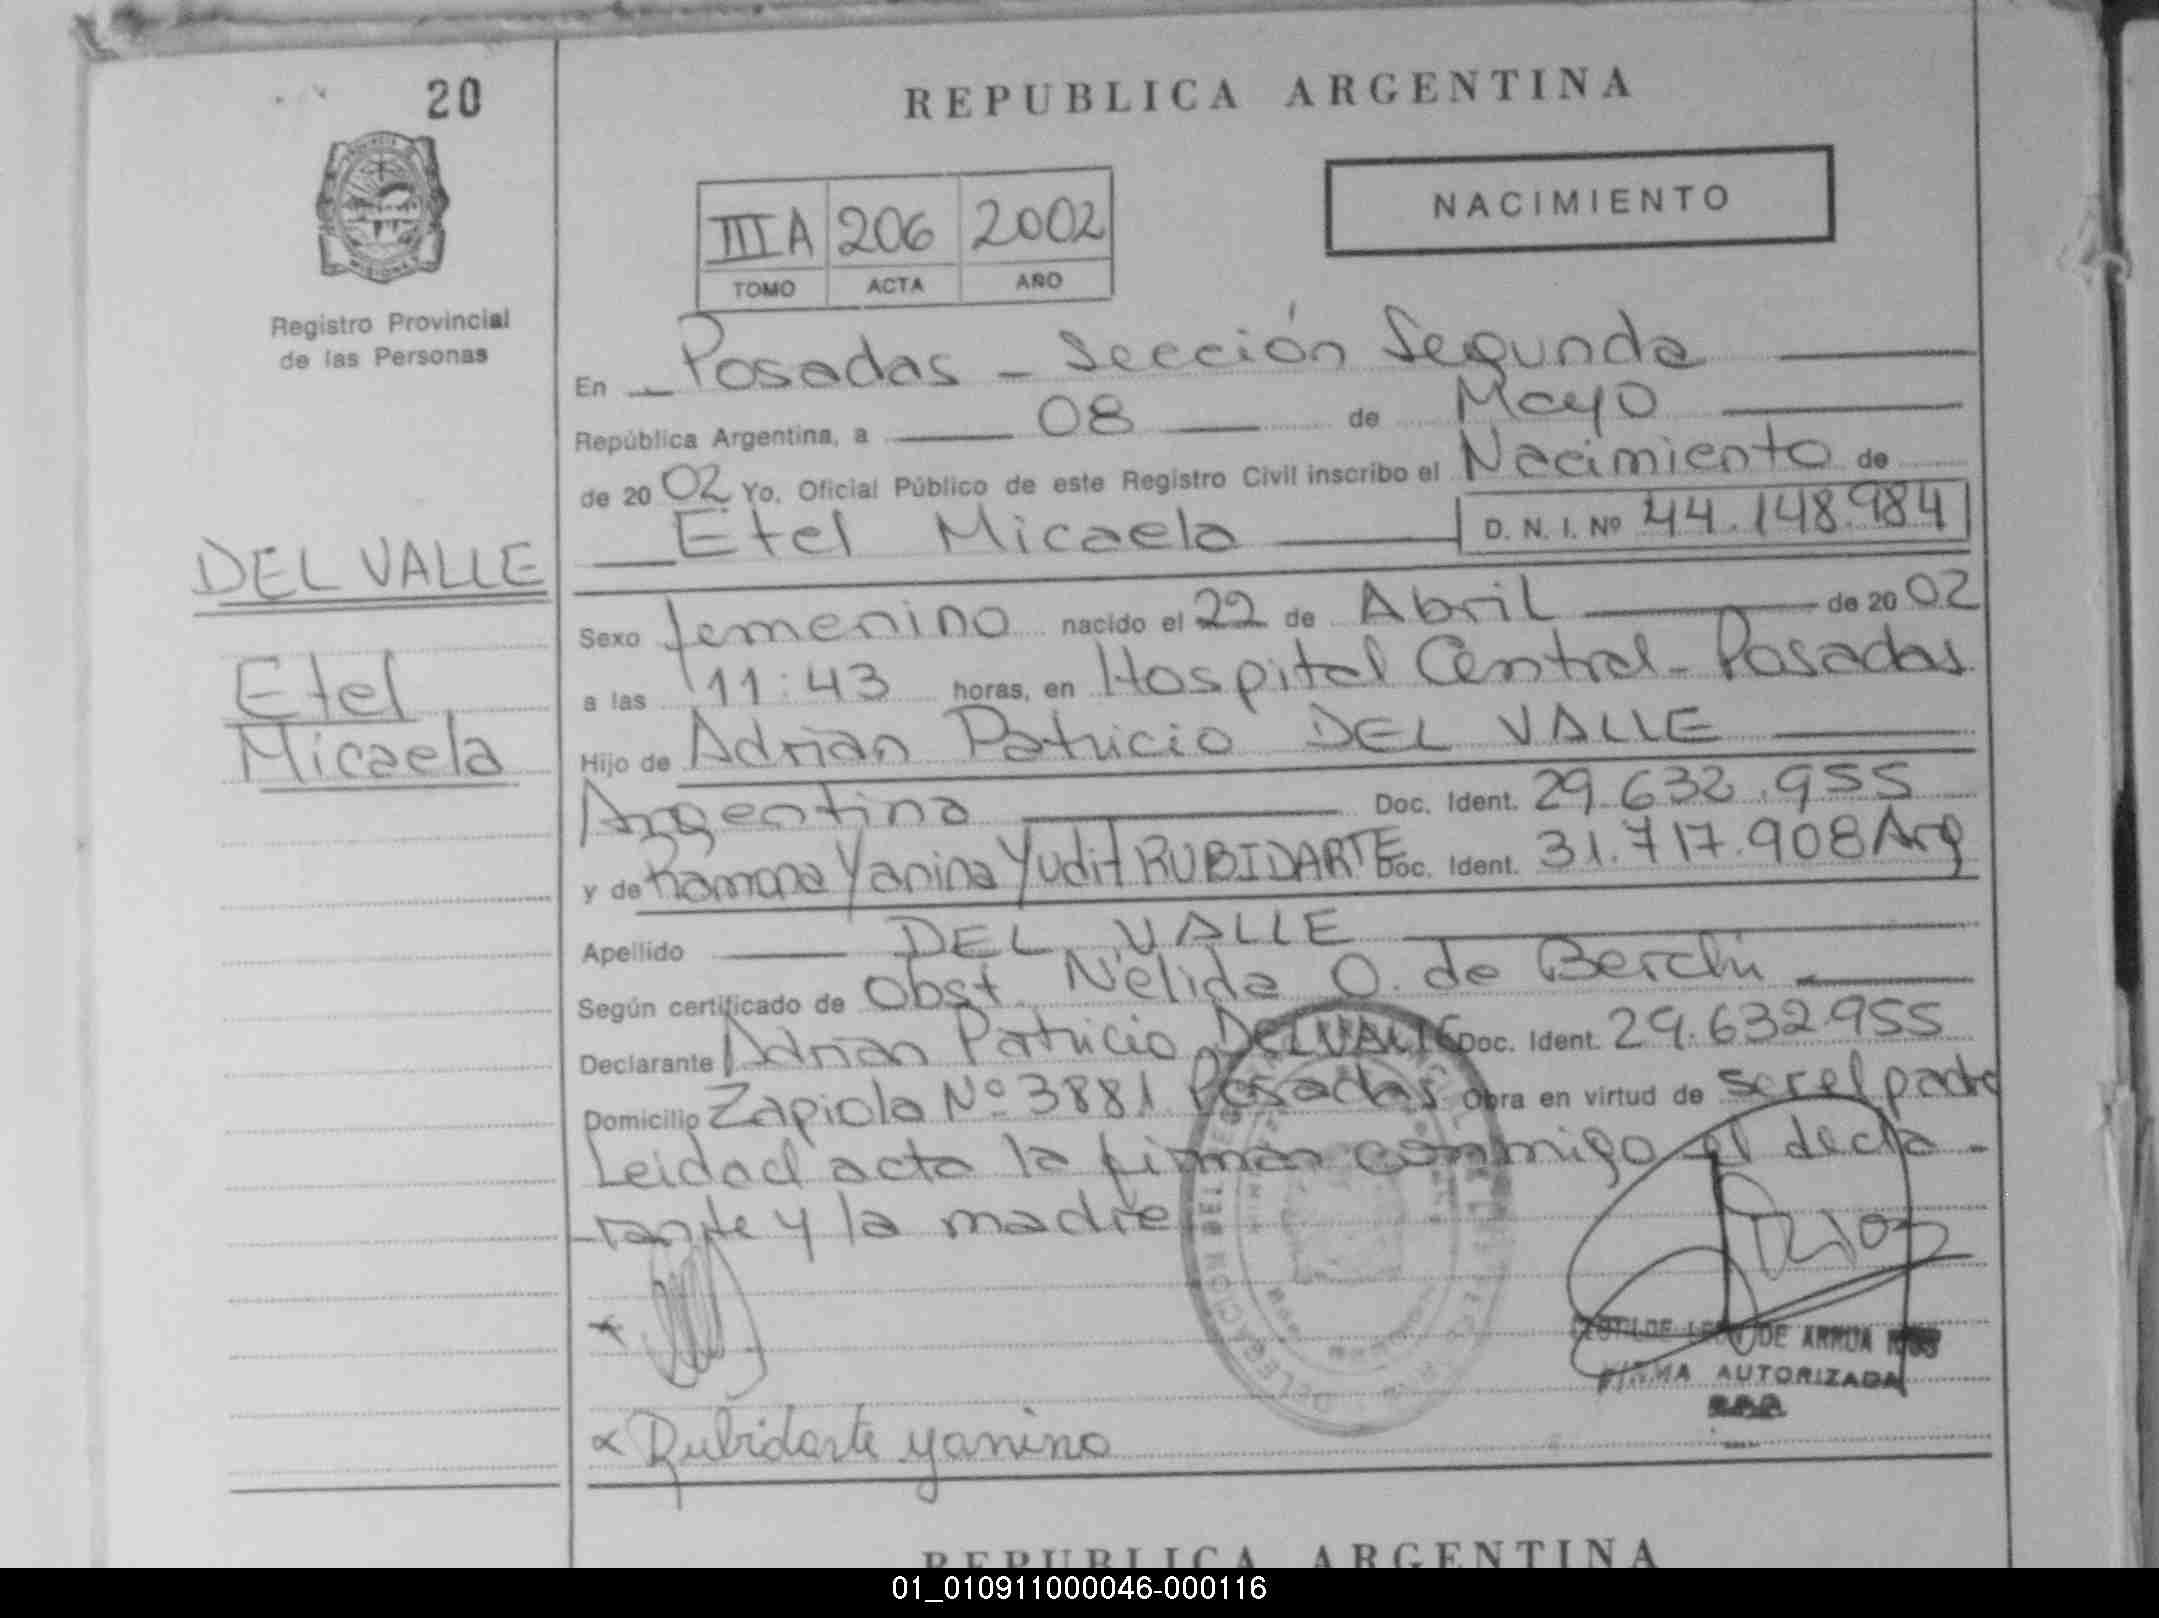 20
REPUBLICA ARGENTINA
NACIMIENTO
III A 206 2002
TOMO ACTA AÑO
MISIONES
Registro Provincial
de las Personas
En Posadas - Sección Segunda
República Argentina, a 08 de Mayo
de 20 02 Yo, Oficial Público de este Registro Civil inscribo el Nacimiento de
Etel Micaela D. N. I. Nº 44.148.984
DEL VALLE
Etel
Micaela
Sexo femenino nacido el 22 de Abril de 20 02
a las 11:43 horas, en Hospital Central - Posadas
Hijo de Adrian Patricio DEL VALLE
Argentina Doc. Ident. 29.632.955
y de Ramona Yanina Yudit RUBIDARTE Doc. Ident. 31.717.908 Arg
Apellido DEL VALLE
Según certificado de Obst. Nélida O. de Berchi
Declarante Adrian Patricio DEL VALLE Doc. Ident. 29.632.955
Domicilio Zapiola Nº 3881 Posadas Obra en virtud de ser el padre
Leidad acta la firman conmigo el decla-
rante y la madre
DE ARRUA
FIRMA AUTORIZADA
x Rubidarte yanina
REPUBLICA ARGENTINA
01_010911000046-000116